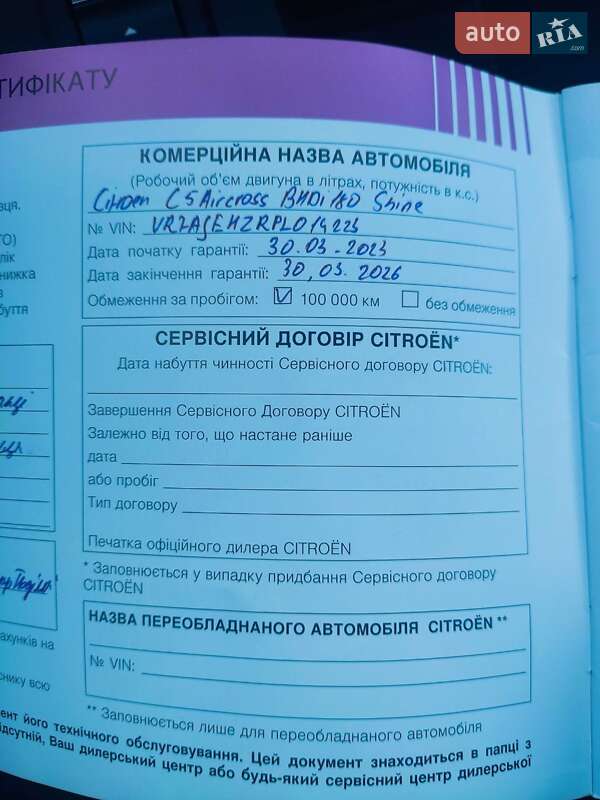 auto RIA .com
ТИФІКАТУ
КОМЕРЦІЙНА НАЗВА АВТОМОБІЛЯ
(Робочий об'єм двигуна в літрах, потужність в к.с.)
Citroen C5 Aircross BHDi 180 Shine
№ VIN:
Дата початку гарантії: 30.03-2023
Дата закінчення гарантії: 30,03.2026
Обмеження за пробігом: 100 000 км без обмеження
СЕРВІСНИЙ ДОГОВІР CITROËN*
Дата набуття чинності Сервісного договору CITROËN:
Завершення Сервісного Договору CITROËN
Залежно від того, що настане раніше
дата
або пробіг
Тип договору
Печатка офіційного дилера CITROËN
* Заповнюється у випадку придбання Сервісного договору
CITROËN
НАЗВА ПЕРЕОБЛАДНАНОГО АВТОМОБІЛЯ CITROËN **
№ VIN:
** Заповнюється лише для переобладнаного автомобіля
ент його технічного обслуговування. Цей документ знаходиться в папці з
ідсутній, Ваш дилерський центр або будь-який сервісний центр дилерської